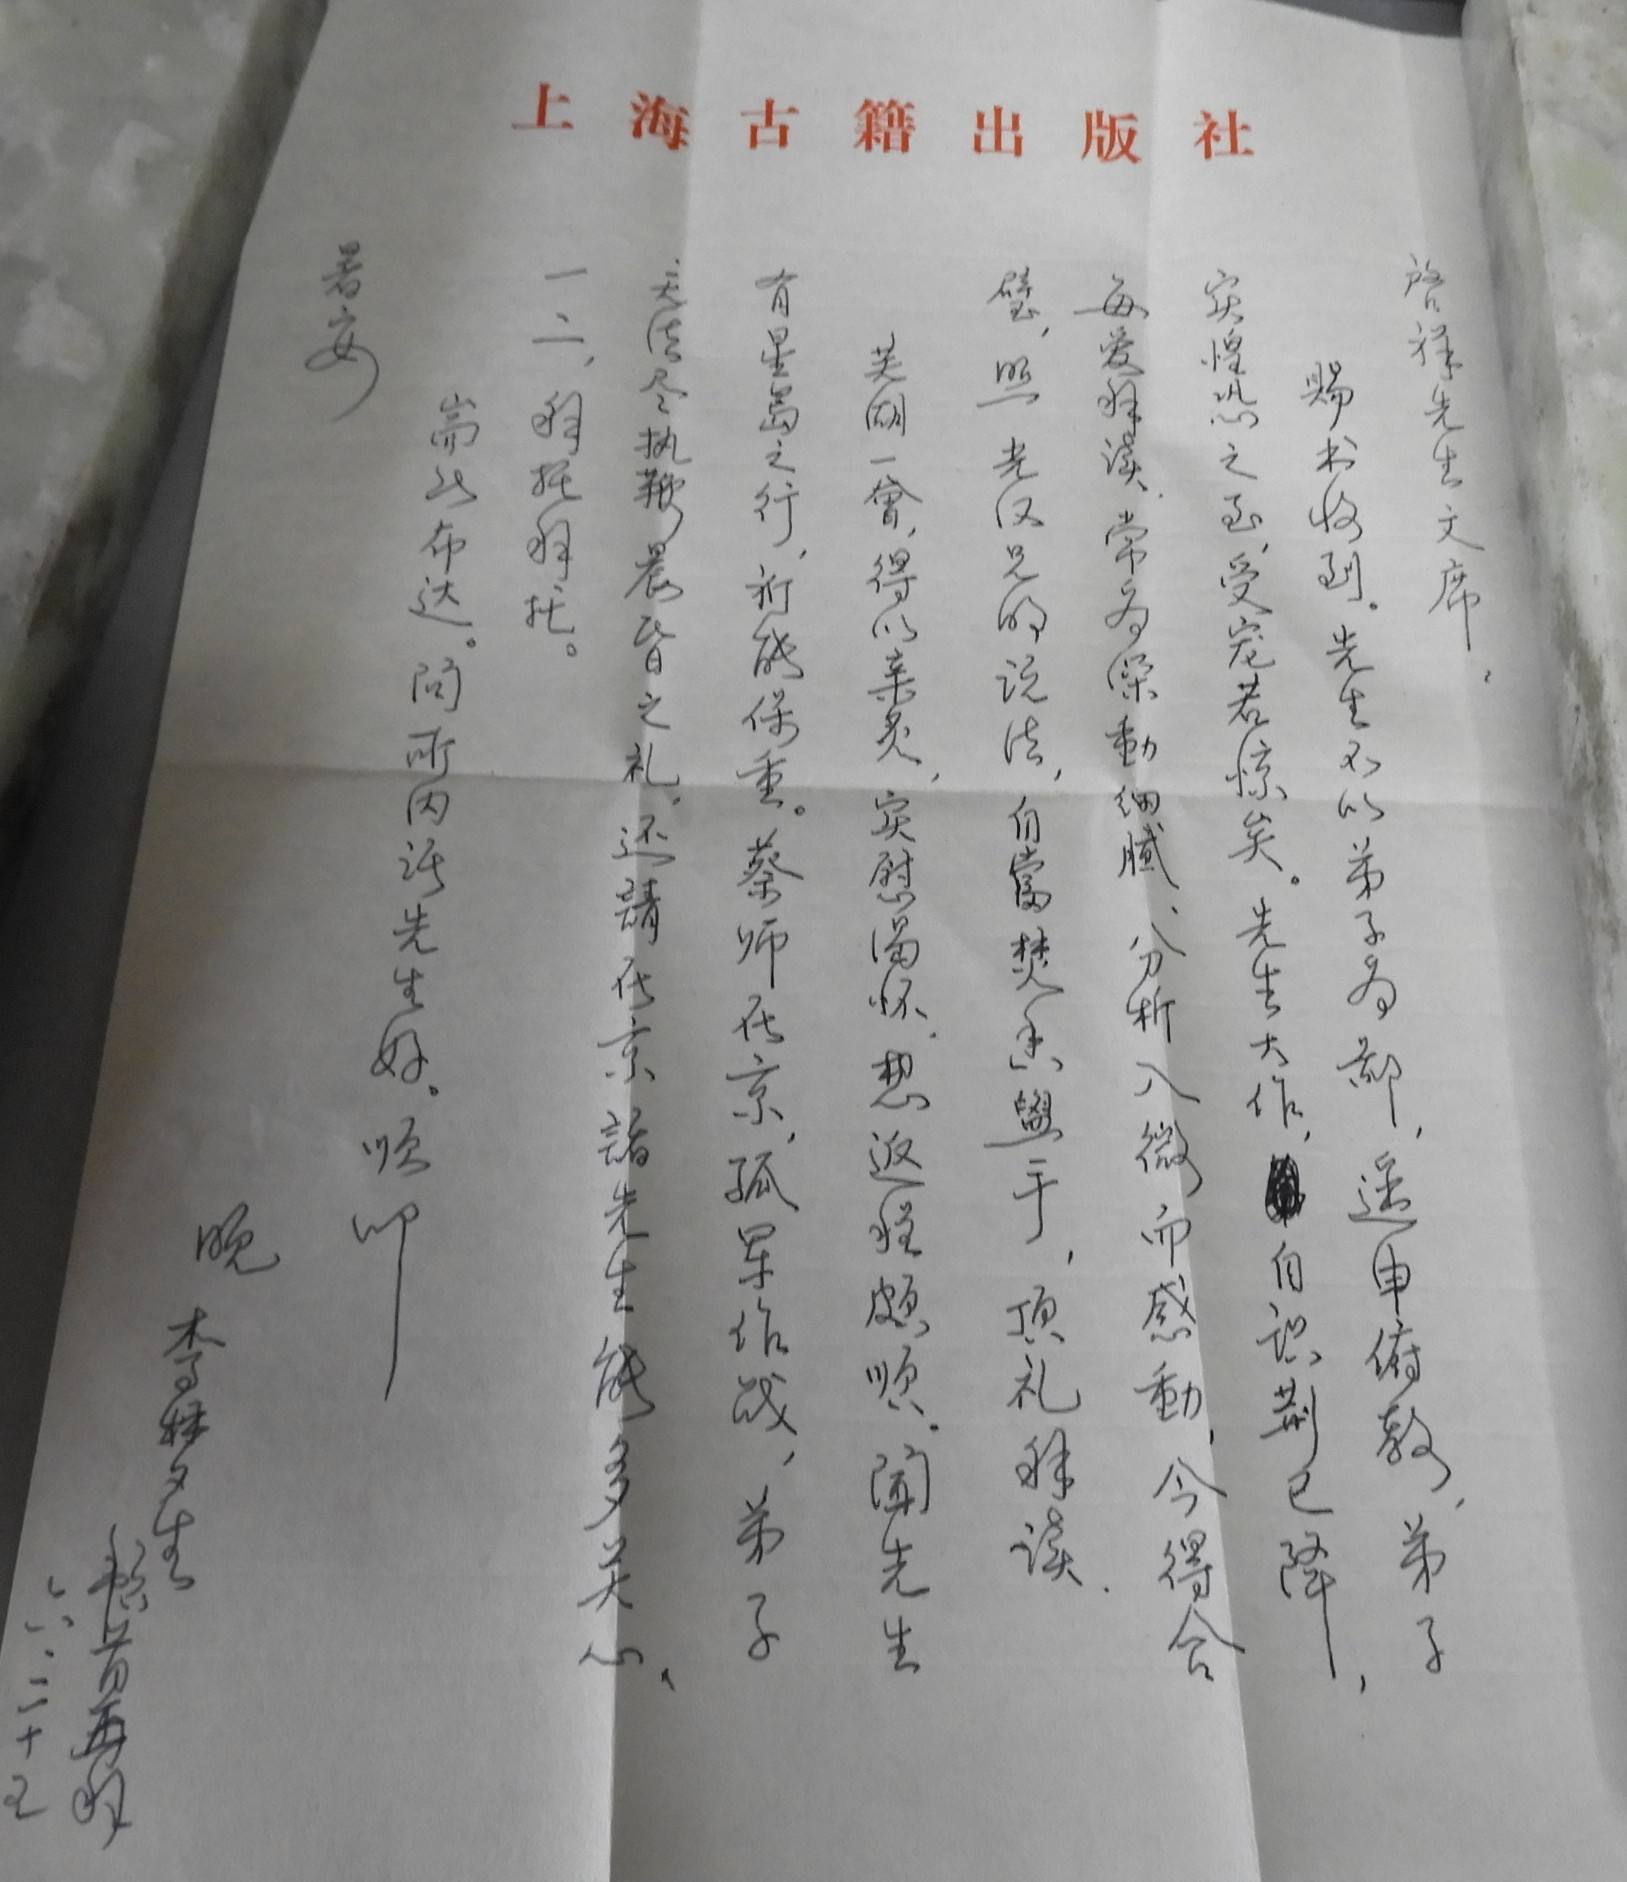 上海古籍出版社
啓祥先生文席、
赐书收到。先生不以弟子为鄙，遥申俯教，弟子
实惶恐之至，受宠若惊矣。先生大作，自识荆已降，
每爱拜读，常为深動细腻、分析入微而感動，今得合
璧，照老汉兄的说法，自當焚香盥手，顶礼拜读。
芜湖一會，得以亲炙，实慰渴怀。想返程颇顺。聞先生
有星岛之行，祈能保重。蔡师在京，孤军作战，弟子
无法尽执鞭晨昏之礼，还請在京諸先生能多关心
一二，拜托拜托。
耑此布达。問所内诸先生好。顺叩
暑安
晚
李梦生
顿首再拜
六、二十五